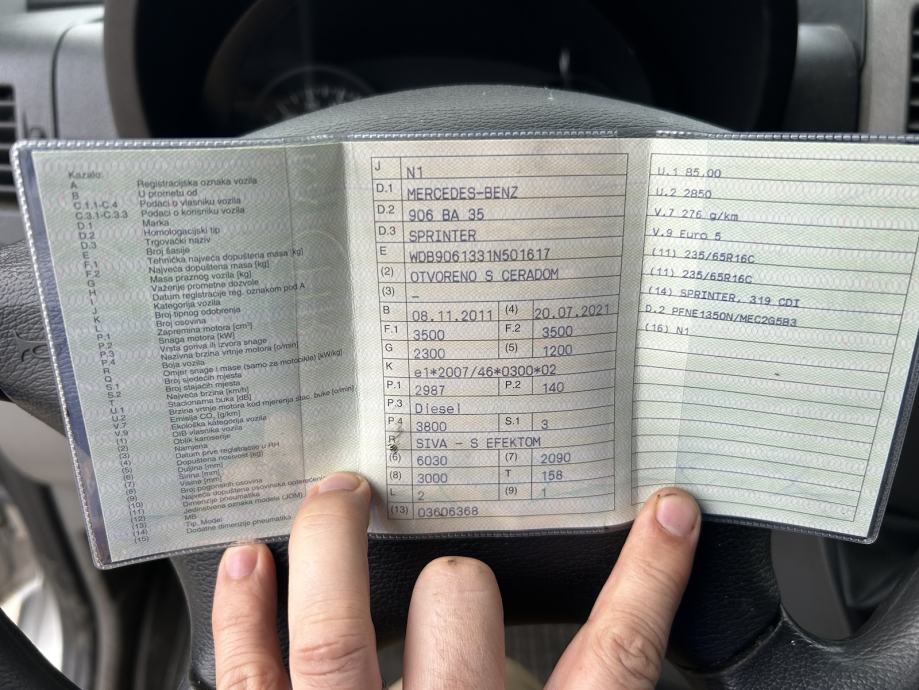 Kazalo:
A Registracijska oznaka vozila
B U prometu od
C.1.1-C.4 Podaci o vlasniku vozila
C.3.1-C.3.3 Podaci o korisniku vozila
D.1 Marka
D.2 Homologacijski tip
D.3 Trgovački naziv
E Broj šasije
F.1 Tehnička najveća dopuštena masa [kg]
F.2 Najveća dopuštena masa [kg]
G Masa praznog vozila [kg]
H Važenje prometne dozvole
I Datum registracije reg. oznakom pod A
J Kategorija vozila
K Broj tipnog odobrenja
L Broj osovina
P.1 Zapremina motora [cm³]
P.2 Snaga motora [kW]
P.3 Vrsta goriva ili izvora snage
P.4 Nazivna brzina vrtnje motora [o/min]
R Boja vozila
Q Omjer snage i mase (samo za motocikle) [kW/kg]
S.1 Broj sjedećih mjesta
S.2 Broj stajaćih mjesta
T Najveća brzina [km/h]
U.1 Stacionarna buka [dB]
U.2 Brzina vrtnje motora kod mjerenja stac. buke [o/min]
V.7 Emisija CO₂ [g/km]
V.9 Ekološka kategorija vozila
(1) OIB vlasnika vozila
(2) Oblik karoserije
(3) Namjena
(4) Datum prve registracije u RH
(5) Dopuštena nosivost [kg]
(6) Duljina [mm]
(7) Širina [mm]
(8) Visina [mm]
(9) Broj pogonskih osovina
(10) Najveća dopuštena osovinska
(11) Dimenzije pneumatika
(12) Jedinstvena oznaka modela (JOM)
(13) MB
(14) Tip, Model
(15) Dodatne dimenzije pneumatika
J N1
D.1 MERCEDES-BENZ
D.2 906 BA 35
D.3 SPRINTER
E WDB9061331N501617
(2) OTVORENO S CERADOM
(3) –
B 08.11.2011 (4) 20.07.2021
F.1 3500 F.2 3500
G 2300 (5) 1200
K e1*2007/46*0300*02
P.1 2987 P.2 140
P.3 Diesel
P.4 3800 S.1 3
R SIVA - S EFEKTOM
(6) 6030 (7) 2090
(8) 3000 T 158
L 2 (9) 1
(13) 03606368
U.1 85.00
U.2 2850
V.7 276 g/km
V.9 Euro 5
(11) 235/65R16C
(11) 235/65R16C
(14) SPRINTER, 319 CDI
D.2 PFNE1350N/MEC2G5B3
(16) N1